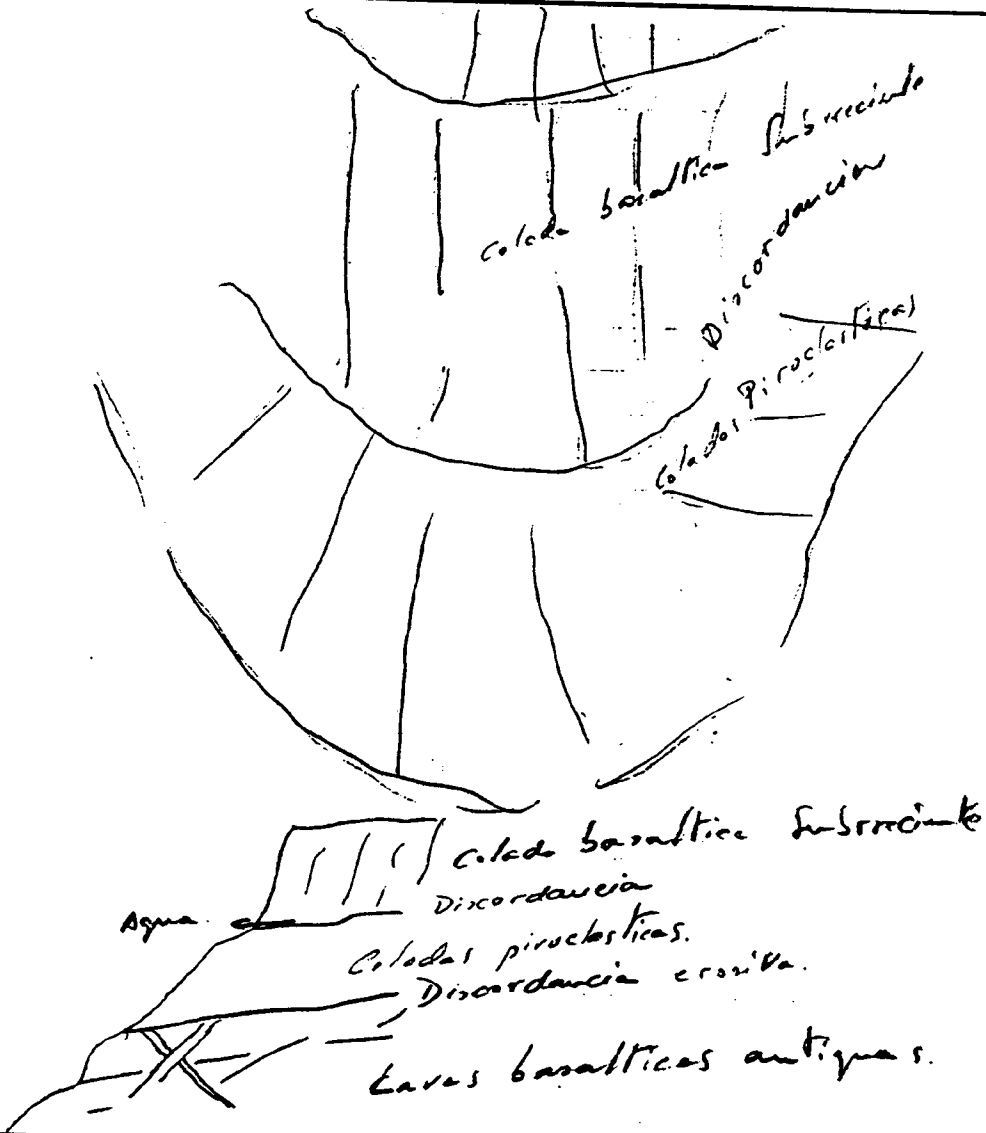 Colada basaltica Subreciente
Discordancia
Coladas Piroclasticas
Colada basaltica Subreciente
Discordancia
Agua.
Coladas piroclasticas.
Discordancia erosiva.
Lavas basalticas antiguas.